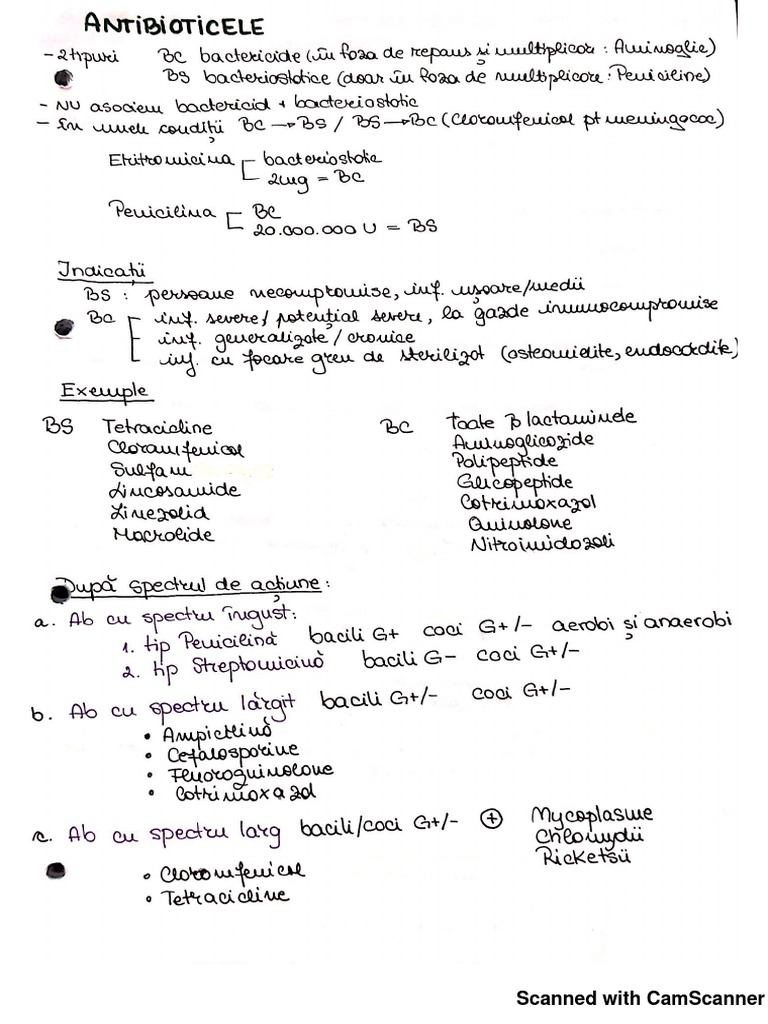 ANTIBIOTICELE
- 2 tipuri BC bactericide (în faza de repaus și multiplicare: Aminoglie)
BS bacteriostatice (doar în faza de multiplicare: Peniciline)
- NU asociem bactericid + bacteriostatic
- În unele condiții BC → BS / BS → BC (Cloramfenicol pt meningococ)
Eritromicina bacteriostatic
2mg = BC
Penicilina BC
20.000.000 U = BS
Indicații
BS: persoane necompromise, inf. ușoare/medii
BC inf. severe/potențial severe, la gazde imunocompromise
inf. generalizate/cronice
inf. cu focare greu de sterilizat (osteomielite, endocardite)
Exemple
BS Tetracicline BC toate β lactaminele
Cloramfenicol Aminoglicozide
Sulfam Polipeptide
Lincosamide Glicopeptide
Linezolid Cotrimoxazol
Macrolide Quinolone
Nitroimidazoli
După spectrul de acțiune:
a. Ab cu spectru îngust:
1. tip Penicilină bacili G+ coci G+/- aerobi și anaerobi
2. tip Streptomicină bacili G- coci G+/-
b. Ab cu spectru lărgit bacili G+/- coci G+/-
• Ampicilină
• Cefalosporine
• Fluoroquinolone
• Cotrimoxazol
c. Ab cu spectru larg bacili/coci G+/- ⊕ Mycoplasme
Chlamydii
Ricketsii
• Cloramfenicol
• Tetracicline
Scanned with CamScanner